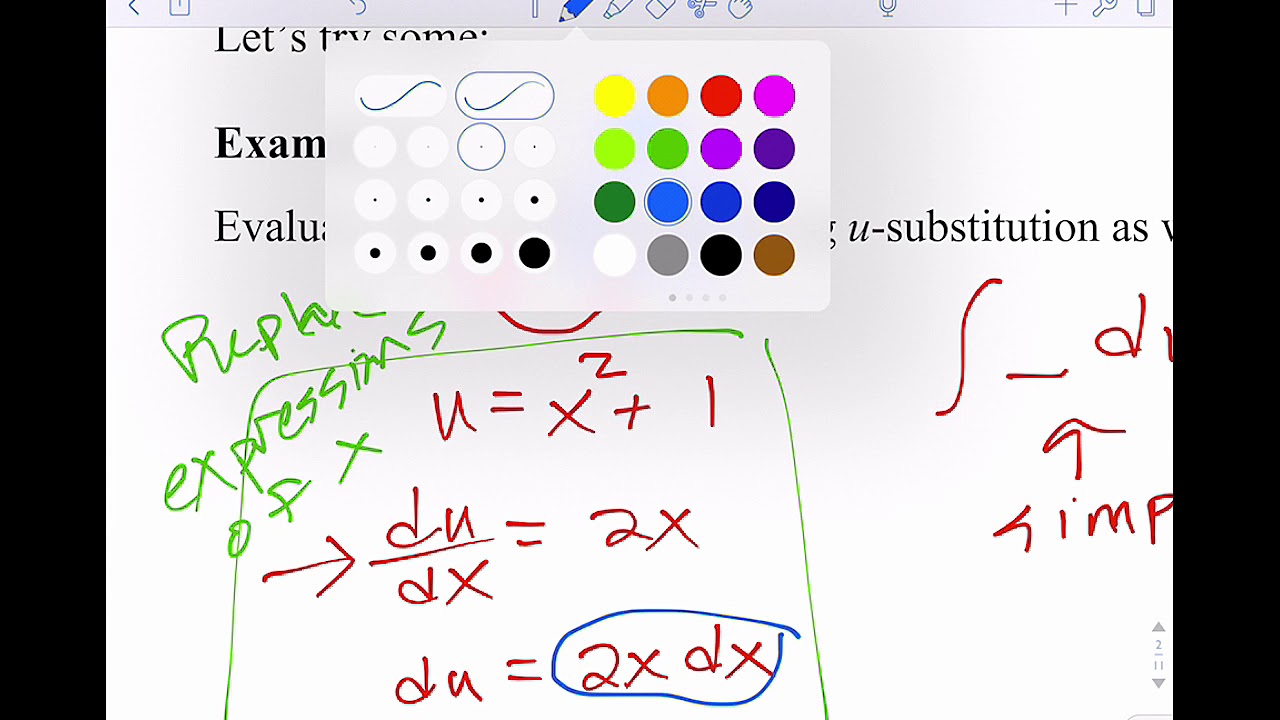 Let's try some:
Exam
Evalua g u-substitution as
Replac
expressions
of x
u = x² + 1
du/dx = 2x
du = 2x dx
∫ _ du
↑
simp
2
11